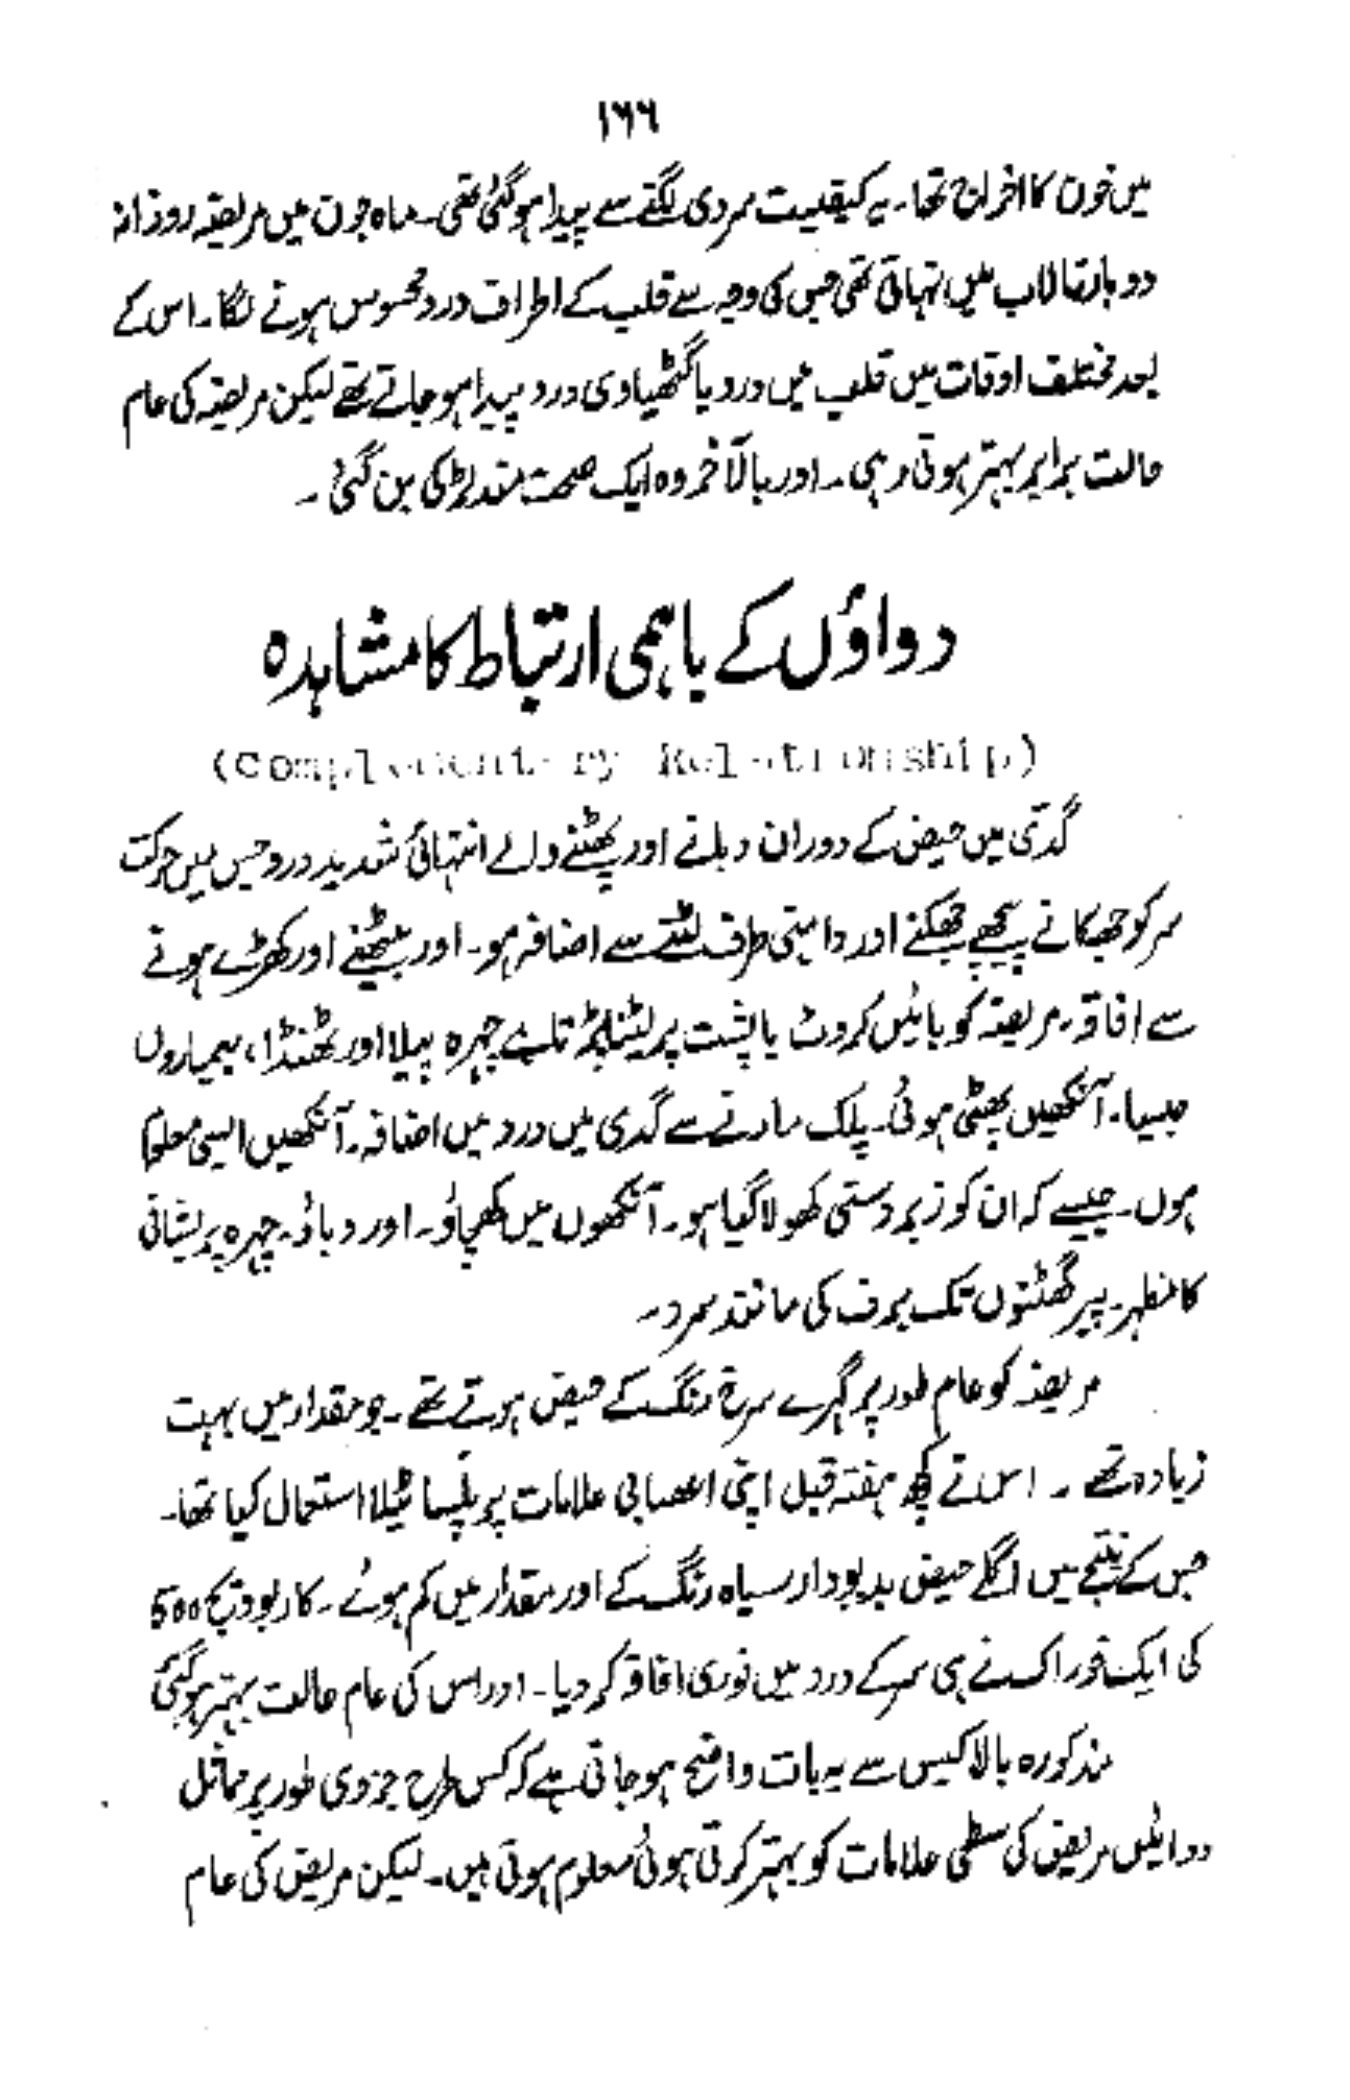 ۱۶۶
میں خون کا اخراج تھا۔ یہ کیفیت سردی لگنے سے پیدا ہو گئی تھی۔ ماہ جون میں مریضہ روزانہ
دو بار تالاب میں نہاتی تھی جس کی وجہ سے قلب کے اطراف درد محسوس ہونے لگا۔ اس کے
بعد مختلف اوقات میں قلب میں درد یا گٹھیاوی درد پیدا ہو جاتے تھے لیکن مریضہ کی عام
حالت برابر بہتر ہوتی رہی۔ اور بالآخر وہ ایک صحت مند لڑکی بن گئی۔
دواؤں کے باہمی ارتباط کا مشاہدہ
(Complementary Relationship)
گدّی میں حیض کے دوران دبانے اور پھٹنے والے انتہائی شدید درد جس میں حرکت
سر کو جھکانے پیچھے جھکنے اور داہنی طرف لٹنے سے اضافہ ہو۔ اور بیٹھنے اور کھڑے ہونے
سے افاقہ۔ مریضہ کو بائیں کروٹ یا پشت پر لیٹنا پڑتا ہے چہرہ پیلا اور ٹھنڈا، بیماروں
جیسا۔ آنکھیں پھٹی ہوئی۔ پلک مارنے سے گدی میں درد میں اضافہ۔ آنکھیں ایسی معلوم
ہوں۔ جیسے کہ ان کو زبردستی کھولا گیا ہو۔ آنکھوں میں کھچاؤ۔ اور دباؤ۔ چہرہ پریشانی
کا مظہر۔ پیر گھٹنوں تک برف کی مانند سرد۔
مریضہ کو عام طور پر گہرے سرخ رنگ کے حیض ہوتے تھے۔ جو مقدار میں بہت
زیادہ تھے۔ اس نے کچھ ہفتہ قبل اپنی اعصابی علامات پر پلساٹیلا استعمال کیا تھا۔
جس کے نتیجے میں اگلے حیض بدبودار سیاہ رنگ کے اور مقدار میں کم ہوئے۔ کاربوویج 500
کی ایک خوراک نے ہی سر کے درد میں فوری افاقہ کر دیا۔ اور اس کی عام حالت بہتر ہو گئی
مذکورہ بالا کیس سے یہ بات واضح ہو جاتی ہے کہ کس طرح جزوی طور پر مماثل
دوائیں مریض کی سطحی علامات کو بہتر کرتی ہوئی معلوم ہوتی ہیں۔ لیکن مریض کی عام